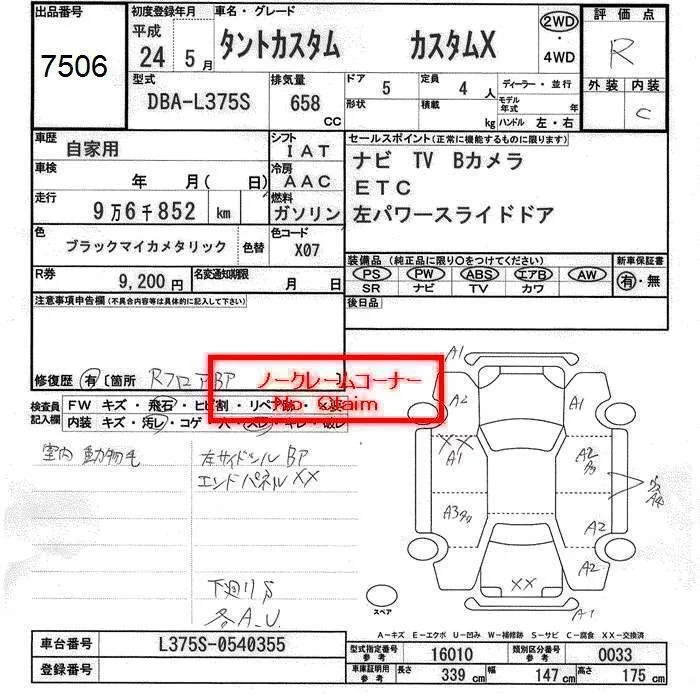 出品番号 初度登録年月 車名・グレード 評価点
7506
平成 24 年 5 月
タントカスタム カスタムX
2WD ・ 4WD
R
外装 内装
C
型式 排気量 ドア 定員 ディーラー・並行
DBA-L375S 658 CC 5 4 人
形状 積載 kg モデル年式 年
ハンドル 左・右
車歴 シフト セールスポイント(正常に機能するものに限ります)
自家用 IAT
ナビ TV Bカメラ
車検 年 月( 日) 冷房 AAC
ETC
走行 9万6千852 km 燃料 ガソリン
左パワースライドドア
色 ブラックマイカメタリック 色替 色コード X07
装備品(純正品に限り○をつけてください) 新車保証書
PS PW ABS エアB AW 有・無
SR ナビ TV カワ
R券 9,200円 名変通知期限 月 日
後日品
注意事項申告欄(不具合内容等は具体的に記入して下さい)
修復歴 有 〔箇所 RフロアBP 〕
ノークレームコーナー
No Claim
検査員記入欄 FW キズ・飛石・ヒビ割・リペア跡・
内装 キズ・汚し・コゲ・
室内 動物毛
左サイドシル BP
エンドパネル XX
下廻りS
各A.U.
A1
A2 A1
XX
A1 A2
A3 A2
A2
XX
A1
スペア
A-キズ E-エクボ U-凹み W-補修跡 S-サビ C-腐食 XX-交換済
車台番号 L375S-0540355
登録番号
型式指定番号 参考 16010 類別区分番号 参考 0033
車庫証明用 参考 長さ 339 cm 幅 147 cm 高さ 175 cm